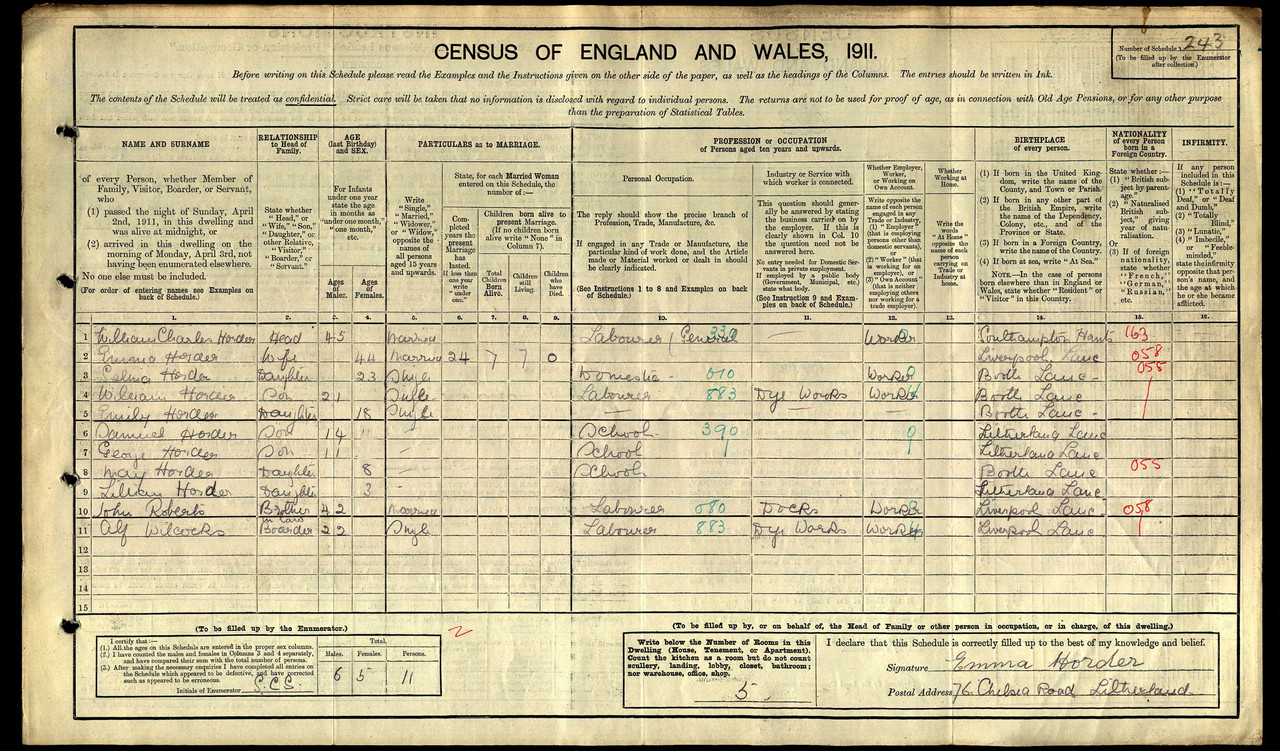 CENSUS OF ENGLAND AND WALES, 1911.
Number of Schedule 243
(To be filled up by the Enumerator
after collection.)
Before writing on this Schedule please read the Examples and the Instructions given on the other side of the paper, as well as the headings of the Columns. The entries should be written in Ink.
The contents of the Schedule will be treated as confidential. Strict care will be taken that no information is disclosed with regard to individual persons. The returns are not to be used for proof of age, as in connection with Old Age Pensions, or for any other purpose
than the preparation of Statistical Tables.
NAME AND SURNAME
of every Person, whether Member of
Family, Visitor, Boarder, or Servant,
who
(1) passed the night of Sunday, April
2nd, 1911, in this dwelling and
was alive at midnight, or
(2) arrived in this dwelling on the
morning of Monday, April 3rd, not
having been enumerated elsewhere.
No one else must be included.
(For order of entering names see Examples on
back of Schedule.)
1.
RELATIONSHIP
to Head of
Family.
State whether
"Head," or
"Wife," "Son,"
"Daughter," or
other Relative,
"Visitor,"
"Boarder," or
"Servant."
2.
AGE
(last Birthday)
and SEX.
For Infants
under one year
state the age
in months as
"under one month,"
"one month,"
etc.
Ages
of
Males.
3.
Ages
of
Females.
4.
PARTICULARS as to MARRIAGE.
Write
"Single,"
"Married,"
"Widower,"
or "Widow,"
opposite the
names of
all persons
aged 15 years
and upwards.
5.
State, for each Married Woman
entered on this Schedule, the
number of :—
Completed
years the
present
Marriage
has
lasted.
If less than
one year
write
"under
one."
6.
Children born alive to
present Marriage.
(If no children born
alive write "None" in
Column 7).
Total
Children
Born
Alive.
7.
Children
still
Living.
8.
Children
who
have
Died.
9.
PROFESSION or OCCUPATION
of Persons aged ten years and upwards.
Personal Occupation.
The reply should show the precise branch of
Profession, Trade, Manufacture, &c.
If engaged in any Trade or Manufacture, the
particular kind of work done, and the Article
made or Material worked or dealt in should
be clearly indicated.
(See Instructions 1 to 8 and Examples on back
of Schedule.)
10.
Industry or Service with
which worker is connected.
This question should gener-
ally be answered by stating
the business carried on by
the employer. If this is
clearly shown in Col. 10
the question need not be
answered here.
No entry needed for Domestic Ser-
vants in private employment.
If employed by a public body
(Government, Municipal, etc.)
state what body.
(See Instruction 9 and Exam-
ples on back of Schedule.)
11.
Whether Employer,
Worker,
or Working on
Own Account.
Write opposite the
name of each person
engaged in any
Trade or Industry,
(1) "Employer"
(that is employing
persons other than
domestic servants),
or
(2) "Worker" (that
is working for an
employer), or
(3) "Own Account"
(that is neither
employing others nor
working for a trade
employer).
12.
Whether
Working at
Home.
Write the
words
"At Home"
opposite the
name of each
person
carrying on
Trade or
Industry at
home.
13.
BIRTHPLACE
of every person.
(1) If born in the United King-
dom, write the name of the
County, and Town or Parish.
(2) If born in any other part of
the British Empire, write
the name of the Dependency,
Colony, etc., and of the
Province or State.
(3) If born in a Foreign Country,
write the name of the Country.
(4) If born at sea, write "At Sea."
NOTE.—In the case of persons
born elsewhere than in England or
Wales, state whether "Resident" or
"Visitor" in this Country.
14.
NATIONALITY
of every Person
born in a
Foreign Country.
State whether :—
(1) "British sub-
ject by parent-
age."
(2) "Naturalised
British sub-
ject," giving
year of natu-
ralisation.
Or
(3) If of foreign
nationality,
state whether
"French,"
"German,"
"Russian,"
etc.
15.
INFIRMITY.
If any person
included in this
Schedule is :—
(1) "Totally
Deaf," or "Deaf
and Dumb,"
(2) "Totally
Blind,"
(3) "Lunatic,"
(4) "Imbecile,"
or "Feeble-
minded,"
state the infirmity
opposite that per-
son's name, and
the age at which
he or she became
afflicted.
16.
1 William Charles Horder Head 45 Married Labourer / General Worker Southampton Hants 163
2 Emma Horder Wife 44 Married 24 7 7 0 Liverpool, Lanc 058
3 Selina Horder Daughter 23 Single Domestic 010 Worker Bootle Lanc 055
4 William Horder Son 21 Single Labourer 883 Dye Works Worker Bootle Lanc
5 Emily Horder Daughter 18 Single — — Bootle Lanc -
6 Samuel Horder Son 14 - School 390 9 Litherland Lanc
7 George Horder Son 11 - School Litherland Lanc
8 May Horder Daughter 8 - School Bootle Lanc 055
9 Lilian Horder Daughter 3 - Litherland Lanc
10 John Roberts Brother in Law 42 Married Labourer 080 Docks Worker Liverpool Lanc 058
11 Alf Wilcocks Boarder 22 Single Labourer 883 Dye Works Worker Liverpool Lanc
12
13
14
15
(To be filled up by the Enumerator.)
I certify that :—
(1.) All the ages on this Schedule are entered in the proper sex columns.
(2.) I have counted the males and females in Columns 3 and 4 separately,
and have compared their sum with the total number of persons.
(3.) After making the necessary enquiries I have completed all entries on
the Schedule which appeared to be defective, and have corrected
such as appeared to be erroneous.
Initials of Enumerator
Total.
Males. Females. Persons.
6 5 11
2
(To be filled up by, or on behalf of, the Head of Family or other person in occupation, or in charge, of this dwelling.)
Write below the Number of Rooms in this
Dwelling (House, Tenement, or Apartment).
Count the kitchen as a room but do not count
scullery, landing, lobby, closet, bathroom;
nor warehouse, office, shop.
5
I declare that this Schedule is correctly filled up to the best of my knowledge and belief.
Signature Emma Horder
Postal Address 76 Chelsea Road Litherland